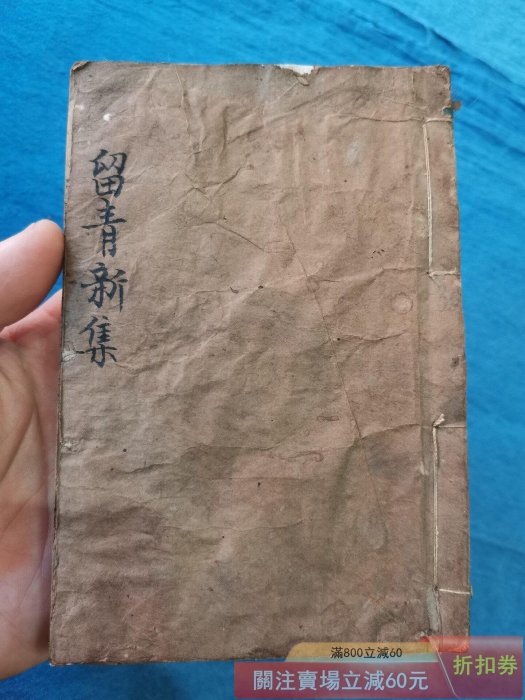 留青新集
滿800立減60
關注賣場立減60元
折扣券